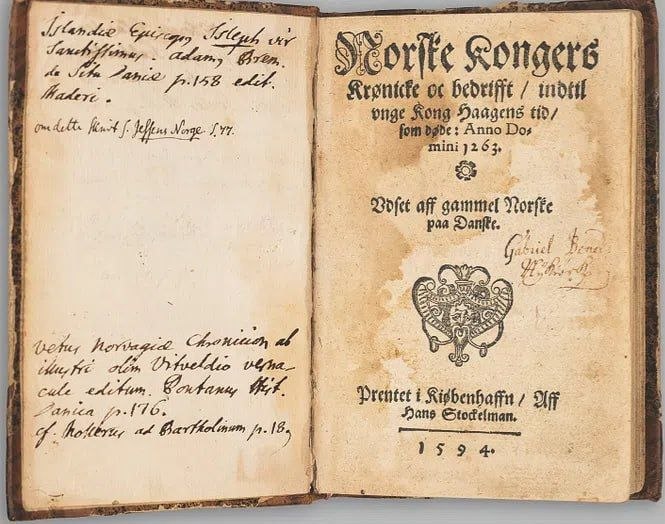 Islandiæ Episcopus Isleph vir
Sanctissimus. adamus Brem.
de Situ Daniæ p. 158 edit.
Maderi.
om dette skrift s. Jessens Norge. S. 77.
vetus Norvagiæ Chronicon ab
illustri olim Vitveldio verna-
cule editum. Pontanus Hist.
Danica p. 176.
cf. Mollerus ad Bartholinum p. 18,
Norske Kongers
Krønicke oc bedrifft / indtil
vnge Kong Haagens tid /
som døde: Anno Do-
mini 1263.
Vdset aff gammel Norske
paa Danske.
Gabriel
Prentet i Kiøbenhaffn / Aff
Hans Stockelman.
1594.